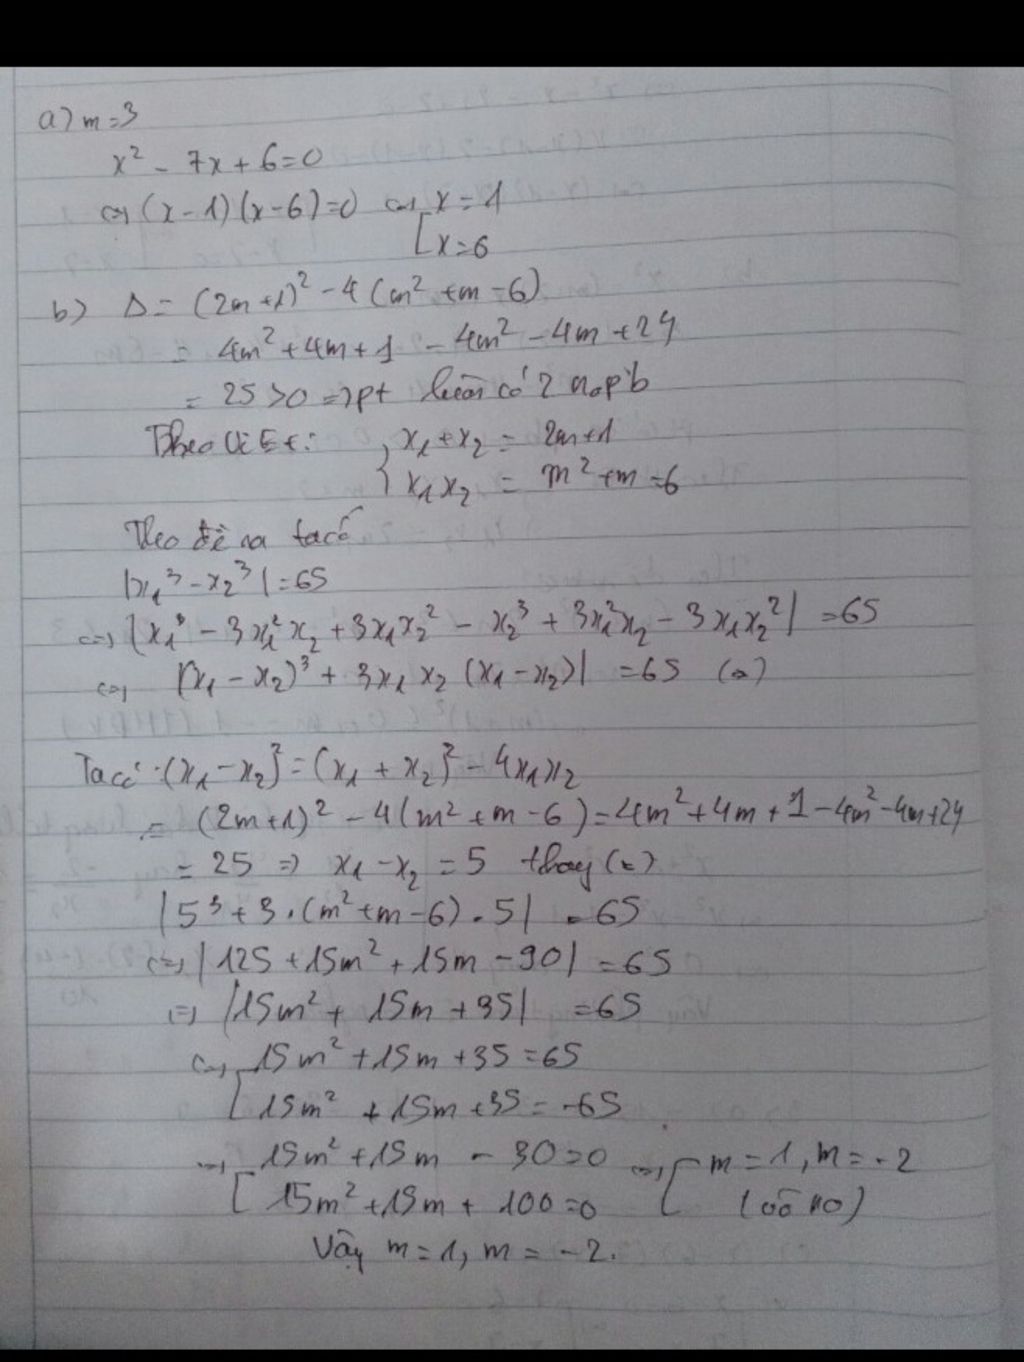 a) m=3
x² - 7x + 6 = 0
⇔ (x-1)(x-6)=0 ⇔ [x=1
[x=6
b) Δ = (2m+1)² - 4(m²+m-6)
= 4m²+4m+1 - 4m² - 4m + 24
= 25 > 0 ⇒ pt luôn có 2 nopb
Theo Vi Et: { x₁+x₂ = 2m+1
{ x₁x₂ = m²+m-6
Theo đề ra ta có
|x₁³ - x₂³| = 65
⇔ |x₁³ - 3x₁²x₂ + 3x₁x₂² - x₂³ + 3x₁²x₂ - 3x₁x₂²| = 65
⇔ |(x₁ - x₂)³ + 3x₁x₂(x₁-x₂)| = 65 (*)
Ta có: (x₁-x₂)² = (x₁+x₂)² - 4x₁x₂
= (2m+1)² - 4(m²+m-6) = 4m²+4m+1-4m²-4m+24
= 25 ⇒ x₁-x₂ = 5 thay (*)
|5³+3.(m²+m-6).5| = 65
⇔ |125+15m²+15m-90| = 65
⇔ |15m²+15m+35| = 65
⇔ [15m²+15m+35=65
[15m²+15m+35=-65
⇔ [15m²+15m-30=0 ⇔ [m=1, m=-2
[15m²+15m+100=0 [(vô no)
Vậy m=1, m=-2.